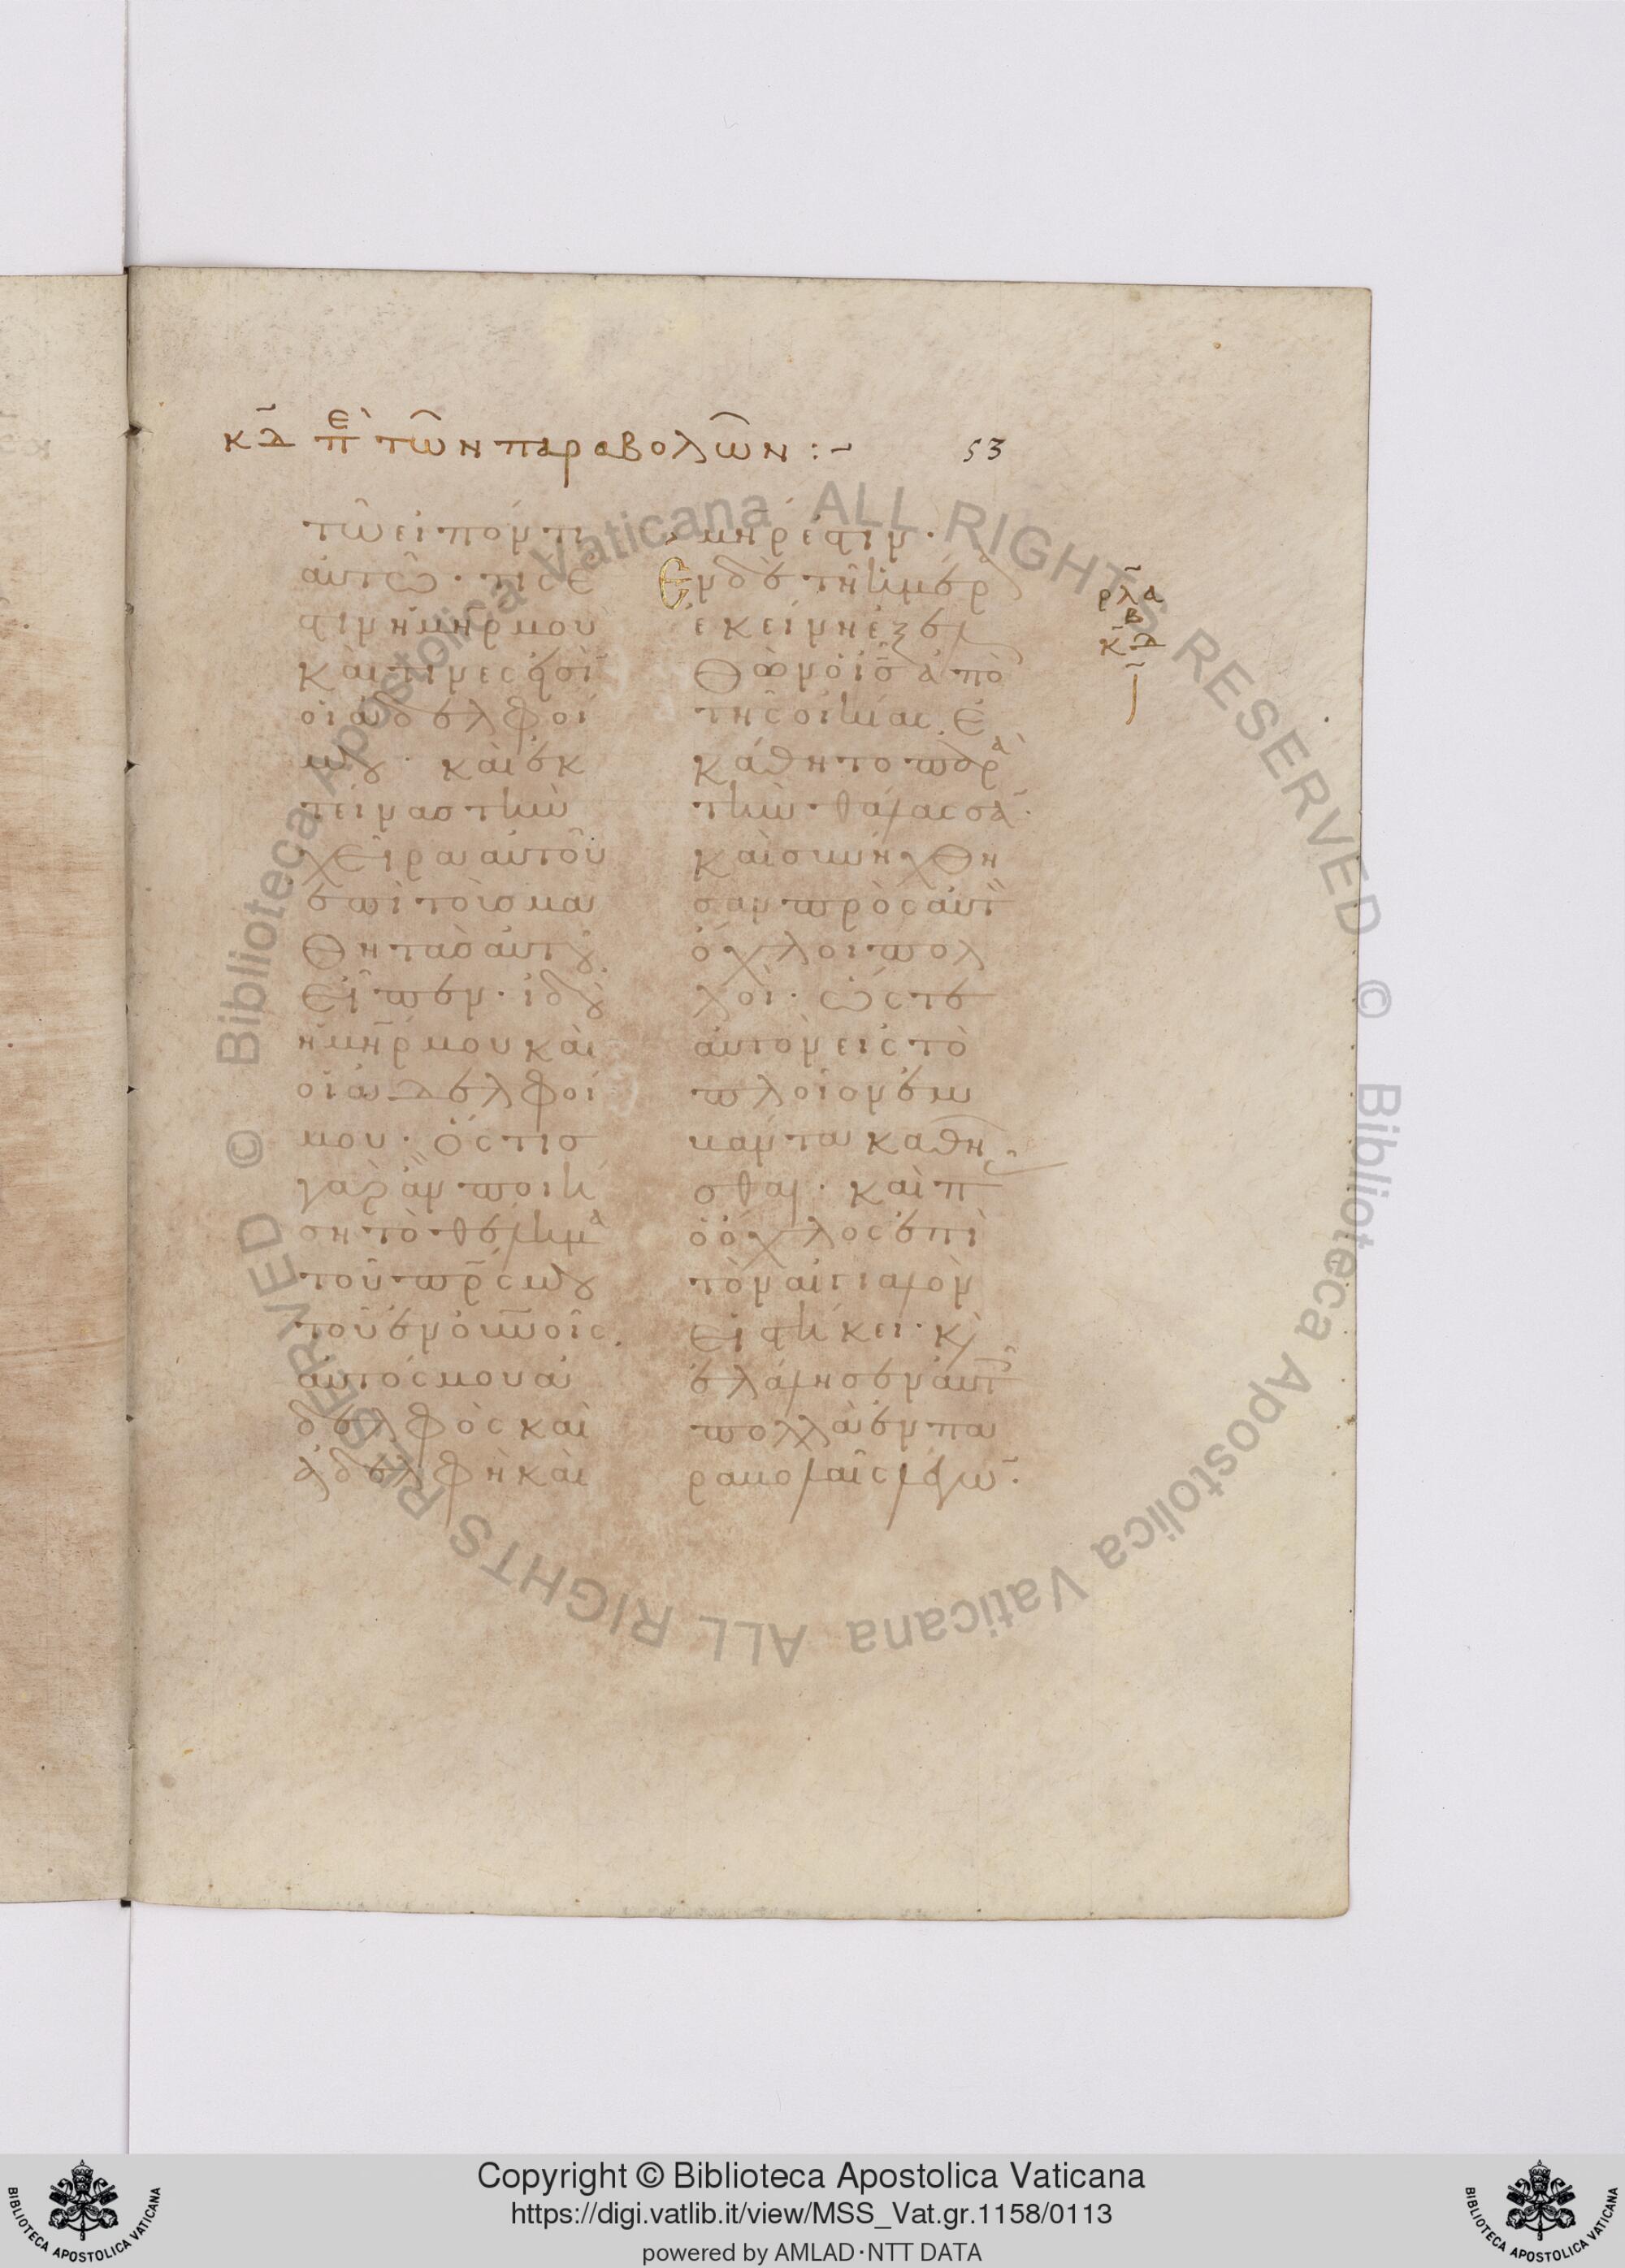 κ̅δ̅ πὲ τῶν παραβολῶν :~
53
τῶ εἰπόντι
αὐτῶ· τίς ἐ
στιν ἡ μη̅ρ μου
καὶ τίνες εἰσὶ̅
οἱ ἀδελφοί
μου· καὶ ἐκ
τείνας τὴν
χεῖρα αὐτοῦ
ἐπὶ τοὺς μα
θητὰς αὐτοῦ
εἶπεν· ἰδοὺ
ἡ μη̅ρ μου καὶ
οἱ ἀδελφοί
μου· ὅστις
γὰρ ἂν ποιή
ση τὸ θέλημα
τοῦ πρ̅ς μου
τοῦ ἐν οὐ̅νοῖς
αὐτός μου ἀ
δελφὸς καὶ
ἀδελφὴ καὶ
μη̅ρ ἐστίν·
Ἐν δὲ τῆ ἡμέρα
ἐκείνη ἐξελ
θὼν ὁ ι̅ς̅ ἀπὸ
τῆς οἰκίας ἐ
κάθητο παρὰ
τὴν θάλασσα̅·
καὶ συνήχθη
σαν πρὸς αὐτ
ὄχλοι πολ
λοί· ὥστε
αὐτὸν εἰς τὸ
πλοῖον ἐμ
βάντα καθῆ
σθαι· καὶ π
ὁ ὄχλος ἐπὶ
τὸν αἰγιαλὸν
εἱστήκει· κ
ἐλάλησεν αὐτ
πολλὰ ἐν πα
ραβολαῖς λέγω̅·
ρ̅λ̅α̅
β
κ̅δ̅
© Biblioteca Apostolica Vaticana ALL RIGHTS RESERVED
© Biblioteca Apostolica Vaticana ALL RIGHTS RESERVED
Copyright © Biblioteca Apostolica Vaticana
https://digi.vatlib.it/view/MSS_Vat.gr.1158/0113
powered by AMLAD·NTT DATA
BIBLIOTECA APOSTOLICA VATICANA
BIBLIOTECA APOSTOLICA VATICANA